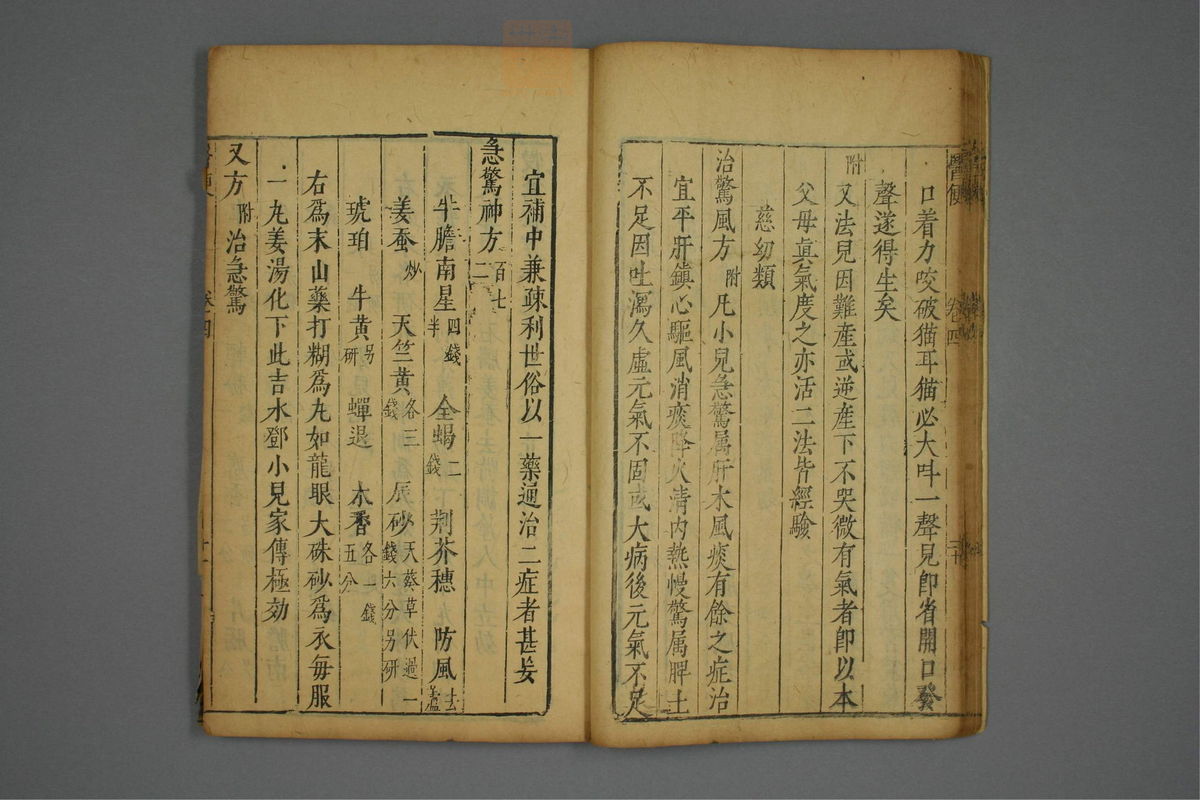 醫便
卷四
二十
口着力咬破猫耳猫必大呌一聲兒卽省開口發
聲遂得生矣
附
又法兒因難産或逆産下不哭微有氣者卽以本
父母眞氣度之亦活二法皆經驗
慈幼類
治驚風方附凡小兒急驚属肝木風痰有餘之症治
宜平肝鎮心驅風消痰降火清內熱慢驚属脾土
不足因吐瀉久虛元氣不固或大病後元氣不足
宜補中兼疎利世俗以一藥通治二症者甚妄
急驚神方百七二
牛膽南星四錢半 全蝎二錢 荆芥穗 防風去蘆
姜蚕炒 天竺黄各三錢 辰砂天葵草伏過一錢六分另研
琥珀 牛黄另研 蟬退 木香各一錢五分
右爲末山藥打糊爲丸如龍眼大硃砂爲衣每服
一丸姜湯化下此吉水鄧小兒家傳極効
又方附治急驚
卷四